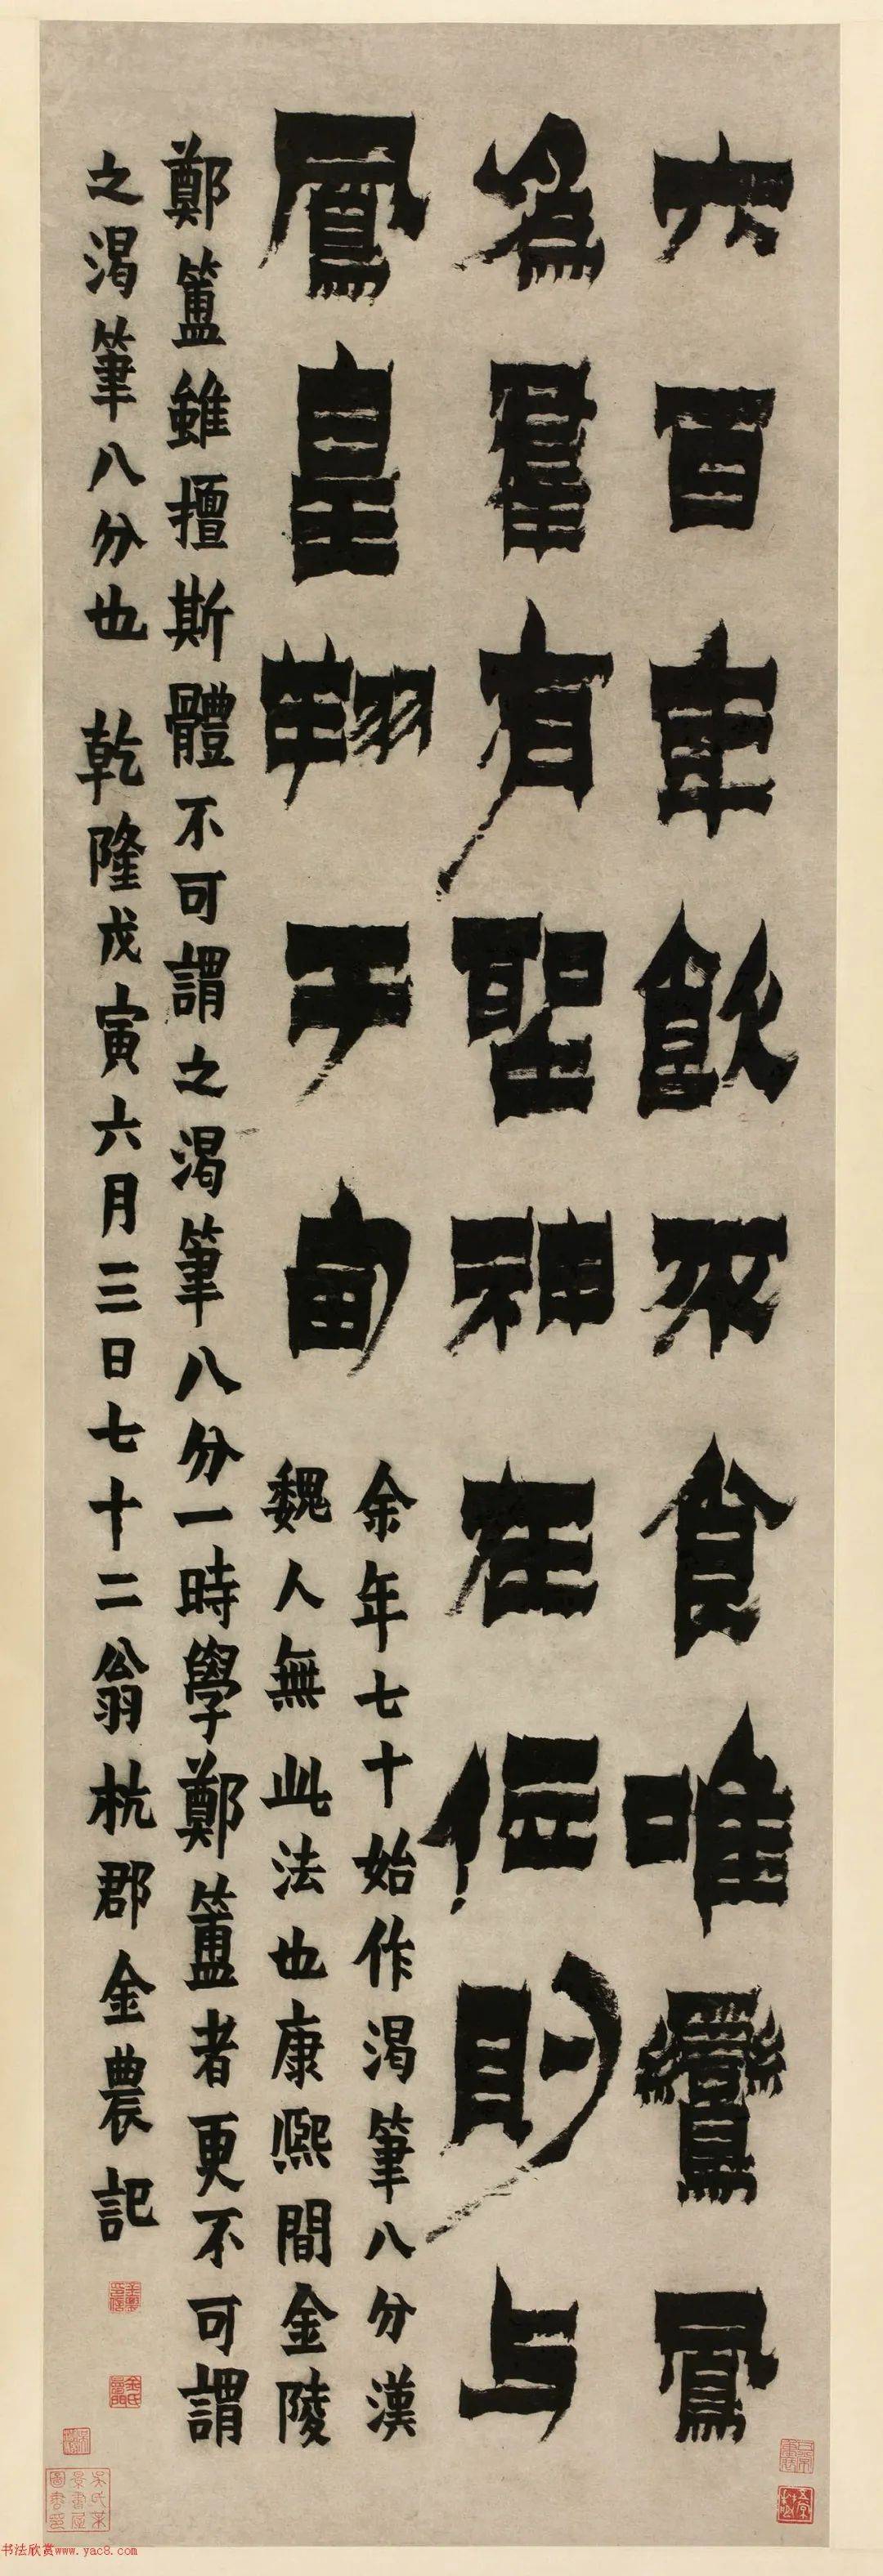 六百年飲不食唯鸞鳳
為羣有聖神在位則与
鳳皇翔于甸
余年七十始作渴筆八分漢
魏人無此法也康熙間金陵
鄭簠雖擅斯體不可謂之渴筆八分一時學鄭簠者更不可謂
之渴筆八分也 乾隆戊寅六月三日七十二翁杭郡金農記
书法欣赏www.yac8.com